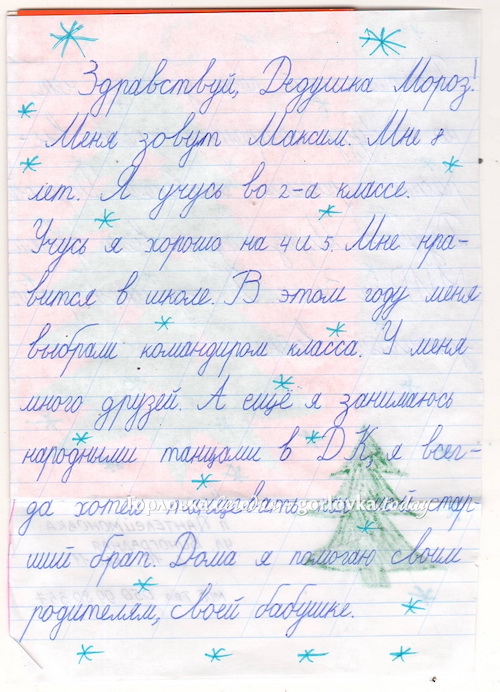 Здравствуй, Дедушка Мороз!
Меня зовут Максим. Мне 8
лет. Я учусь во 2-а классе.
Учусь я хорошо на 4 и 5. Мне нра-
вится в школе. В этом году меня
выбрали командиром класса. У меня
много друзей. А ещё я занимаюсь
народными танцами в ДК, я всег-
да хотел танцевать стар
ший брат. Дома я помогаю своим
родителям, своей бабушке.